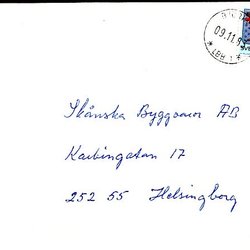 09.11.9
* LBH 1 *
Skånska Byggvaror AB
Karbingatan 17
252 55 Helsingborg